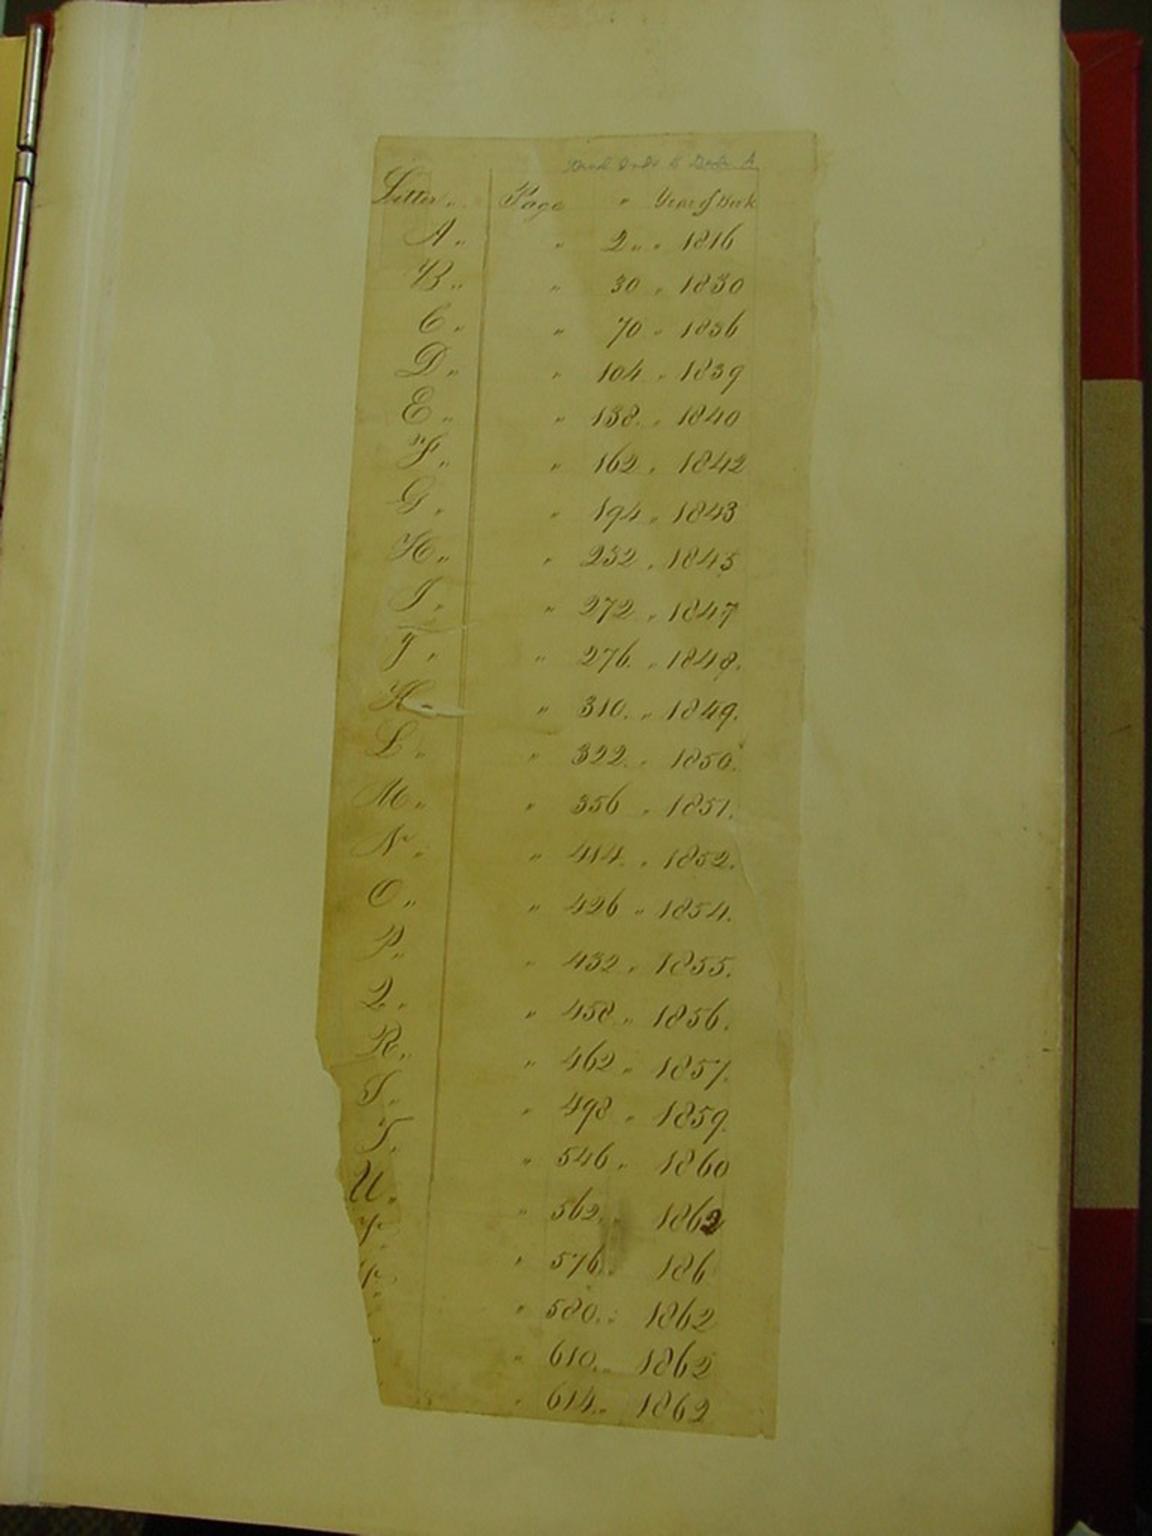 Letter „ Page „ Year of Book
A „ „ 2 „ „ 1816
B „ „ 30 „ 1830
C „ „ 70 „ 1836
D „ „ 104 „ 1839
E „ „ 138 „ 1840
F „ „ 162 „ 1842
G „ „ 194 „ 1843
H „ „ 232 „ 1845
I „ „ 272 „ 1847
J „ „ 276 „ 1848.
K „ 310. „ 1849.
L „ „ 322 „ 1850.
M „ „ 356 „ 1851.
N „ „ 414 „ 1852.
O „ „ 426 „ 1854.
P „ „ 432 „ 1855.
Q „ „ 458 „ 1856.
R „ „ 462 „ 1857.
S „ „ 498 „ 1859.
T „ „ 546 „ 1860
U „ „ 562 „ 1862
„ 576 „ 186
„ 580 „ 1862
„ 610 „ 1862
„ 614 „ 1862